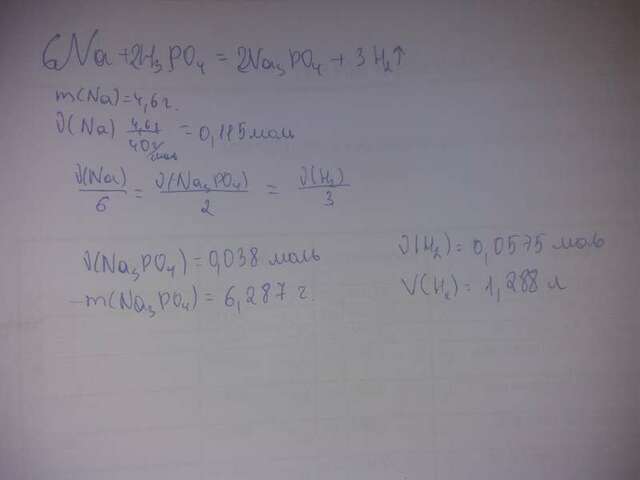 6Na+2H₃PO₄ = 2Na₃PO₄ + 3H₂↑
m(Na)=4,6г.
ν(Na) 4,6г/40г/моль = 0,115моль
ν(Na)/6 = ν(Na₃PO₄)/2 = ν(H₂)/3
ν(Na₃PO₄)=0,038 моль
m(Na₃PO₄)= 6,287 г.
ν(H₂)= 0,0575 моль
V(H₂)= 1,288 л